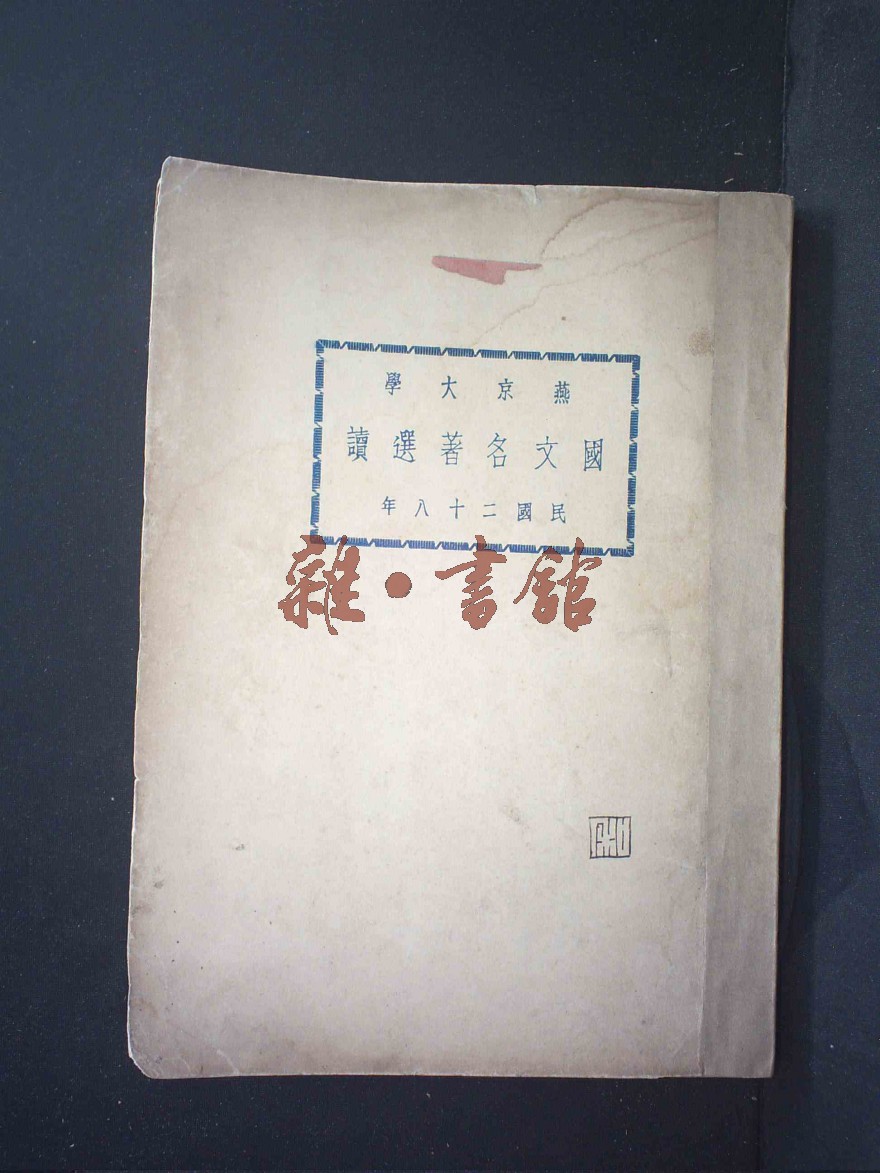 燕京大學
國文名著選讀
民國二十八年
雜·書館